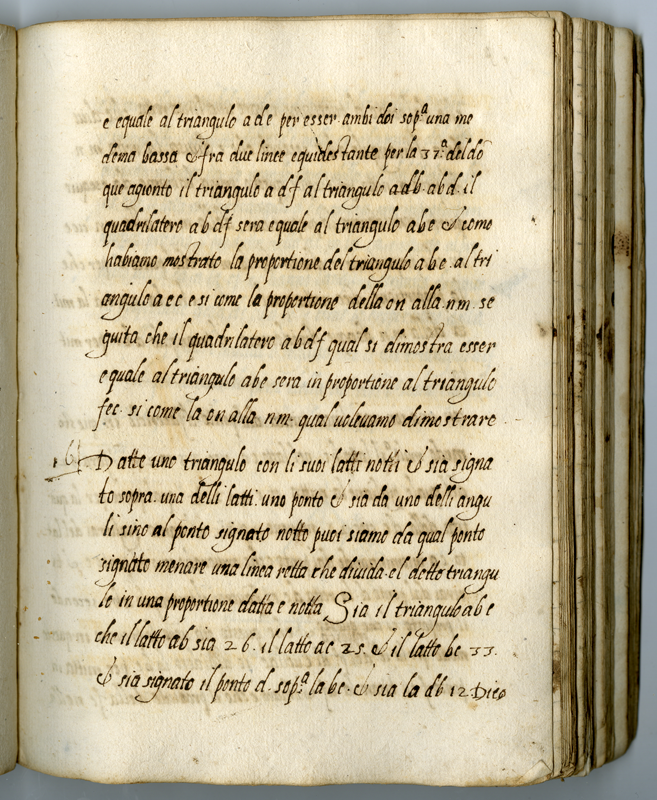 e equale al triangulo a d e per esser ambi doi sop.ª una me
dema bassa & fra due linee equidestante per la 37.ª del do
que agionto il triangulo a d f al triangulo a d b. a b d. il
quadrilatero a b d f sera equale al triangulo a b e & como
habiamo mostrato la proportione del triangulo a b e. al tri
angulo a e c e si come la proportione della on alla. nm. se
guita che il quadrilatero a b d f qual si dimostra esser
equale al triangulo abe sera in proportione al triangulo
fec. si come la on alla nm. qual volevamo dimostrare
Datte uno triangulo con li suoi latti notti & sia signa
to sopra. una delli latti. uno ponto & sia da uno delli angu
li sino al ponto signato notto puoi siamo da qual ponto
signato menare una linea retta che divida. el detto triangu
lo in una proportione datta e notta Sia il triangulo a b e
che il latto ab sia 26. il latto ac 25. & il latto be 33.
& sia signato il ponto d. sop.ª la be. & sia la db 12 Dico